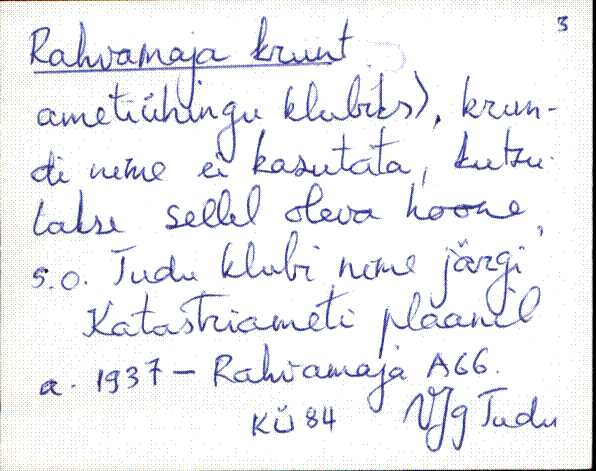 3
Rahvamaja krunt
ametiühingu klubiks), krun-
di nime ei kasutata, kutsu-
takse sellel oleva hoone,
s.o. Tudu klubi nime järgi
Katastriameti plaanil
a. 1937 - Rahvamaja A66.
KÜ 84 VJg Tudu